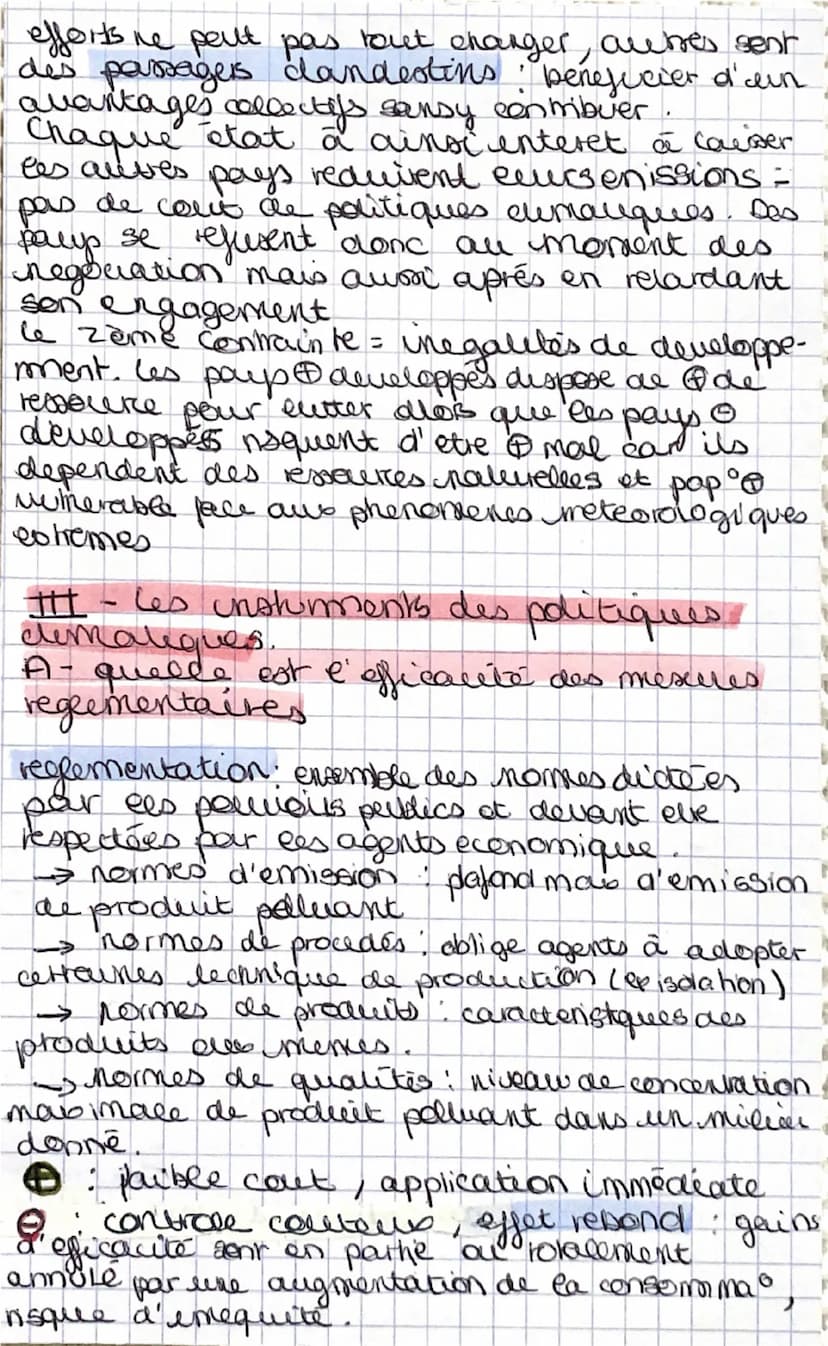 efforts ne peut pas tout changer, autres sont
des passagers clandestins : beneficier d'un
avantages collectifs sansy contribuer.
Chaque état à ainsi interet à laisser
les autres pays reduirent leursenissions =
pas de cout de politiques climatiques. Des
pays se refusent donc au moment des
negociation mais aussi aprés en retardant
son engagement
le 2ème contrainte = inegalités de developpe-
ment. les pays ⊕ developpés dispose de ⊕ de
ressource pour lutter alors que les pays ⊖
developpés risquent d'etre ⊕ mal car ils
dependent des ressources naturelles et pop° ⊕
vulnerable face aux phenomenes meteorologiques
extremes
III - les instruments des politiques
climatiques.
A- quelle est l'efficacité des mesures
reglementaires
reglementation : ensemble des normes dictées
par les pouvoirs publics et devant etre
respectées par les agents economique.
→ normes d'emission : plafond max d'emission
de produit polluant
→ normes de procedés : oblige agents à adopter
certaines technique de production (ex isolation)
→ normes de produits : caracteristiques des
produits eux memes.
→ normes de qualités : niveau de concentration
maximale de produit polluant dans un milieu
donné.
⊕ : faible cout, application immédiate
⊖ : controle couteux, effet rebond : gains
d'efficacité sont en partie ou totalement
annulé par une augmentation de la consomma°,
risque d'inequité.